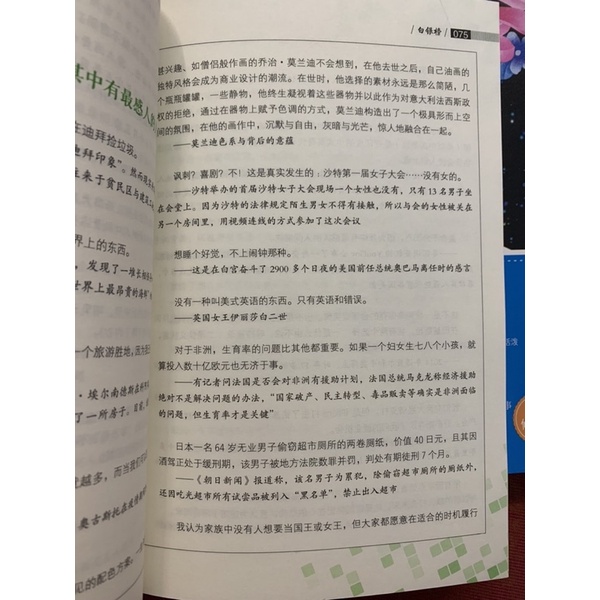 白银榜 075
甚兴趣、如僧侣般作画的乔治·莫兰迪不会想到，在他去世之后，自己油画的
独特风格会成为商业设计的潮流。在世时，他选择的素材永远是那么简陋，几
个瓶瓶罐罐，一些静物，他终生凝视着这些器物并以此作为对意大利法西斯政
权的拒绝，通过在器物上赋予色调的方式，莫兰迪构造出了一个极具形而上空
间的氛围，在他的画作中，沉默与自由，灰暗与光芒，惊人地融合在一起。
——莫兰迪色系与背后的意蕴
讽刺？喜剧？不！这是真实发生的：沙特第一届女子大会……没有女的。
——沙特举办的首届沙特女子大会现场一个女性也没有，只有 13 名男子坐
在会堂上。因为沙特的法律规定陌生男女不得有接触，所以与会的女性被关在
另一个房间里，用视频连线的方式参加了这次会议
想睡个好觉，不上闹钟那种。
——这是在白宫奋斗了 2900 多个日夜的美国前任总统奥巴马离任时的感言
没有一种叫美式英语的东西。只有英语和错误。
——英国女王伊丽莎白二世
对于非洲，生育率的问题比其他都重要。如果一个妇女生七八个小孩，就
算投入数十亿欧元也无济于事。
——有记者问法国是否会对非洲有援助计划，法国总统马克龙称经济援助
绝对不是解决问题的办法，“国家破产、民主转型、毒品贩卖等确实是非洲面临
的问题，但生育率才是关键”
日本一名 64 岁无业男子偷窃超市厕所的两卷厕纸，价值 40 日元，且其因
酒驾正处于缓刑期，该男子被地方法院数罪并罚，判处有期徒刑 7 个月。
——《朝日新闻》报道称，该名男子为累犯，除偷窃超市厕所的厕纸外，
还因吃光超市所有试尝品被列入“黑名单”，禁止出入超市
我认为家族中没有人想要当国王或女王，但大家都愿意在适合的时机履行
其中有最感人
在迪拜捡垃圾。
迪拜印象”。
往来于贫民区与建筑
界上的东西。
发现了一堆长相
世界上最昂贵的海鲜
一个旅游胜地，因为
·埃尔南德斯在
一个房子。目前，
越多，而当我们
奥古斯托在
见的配色方案。